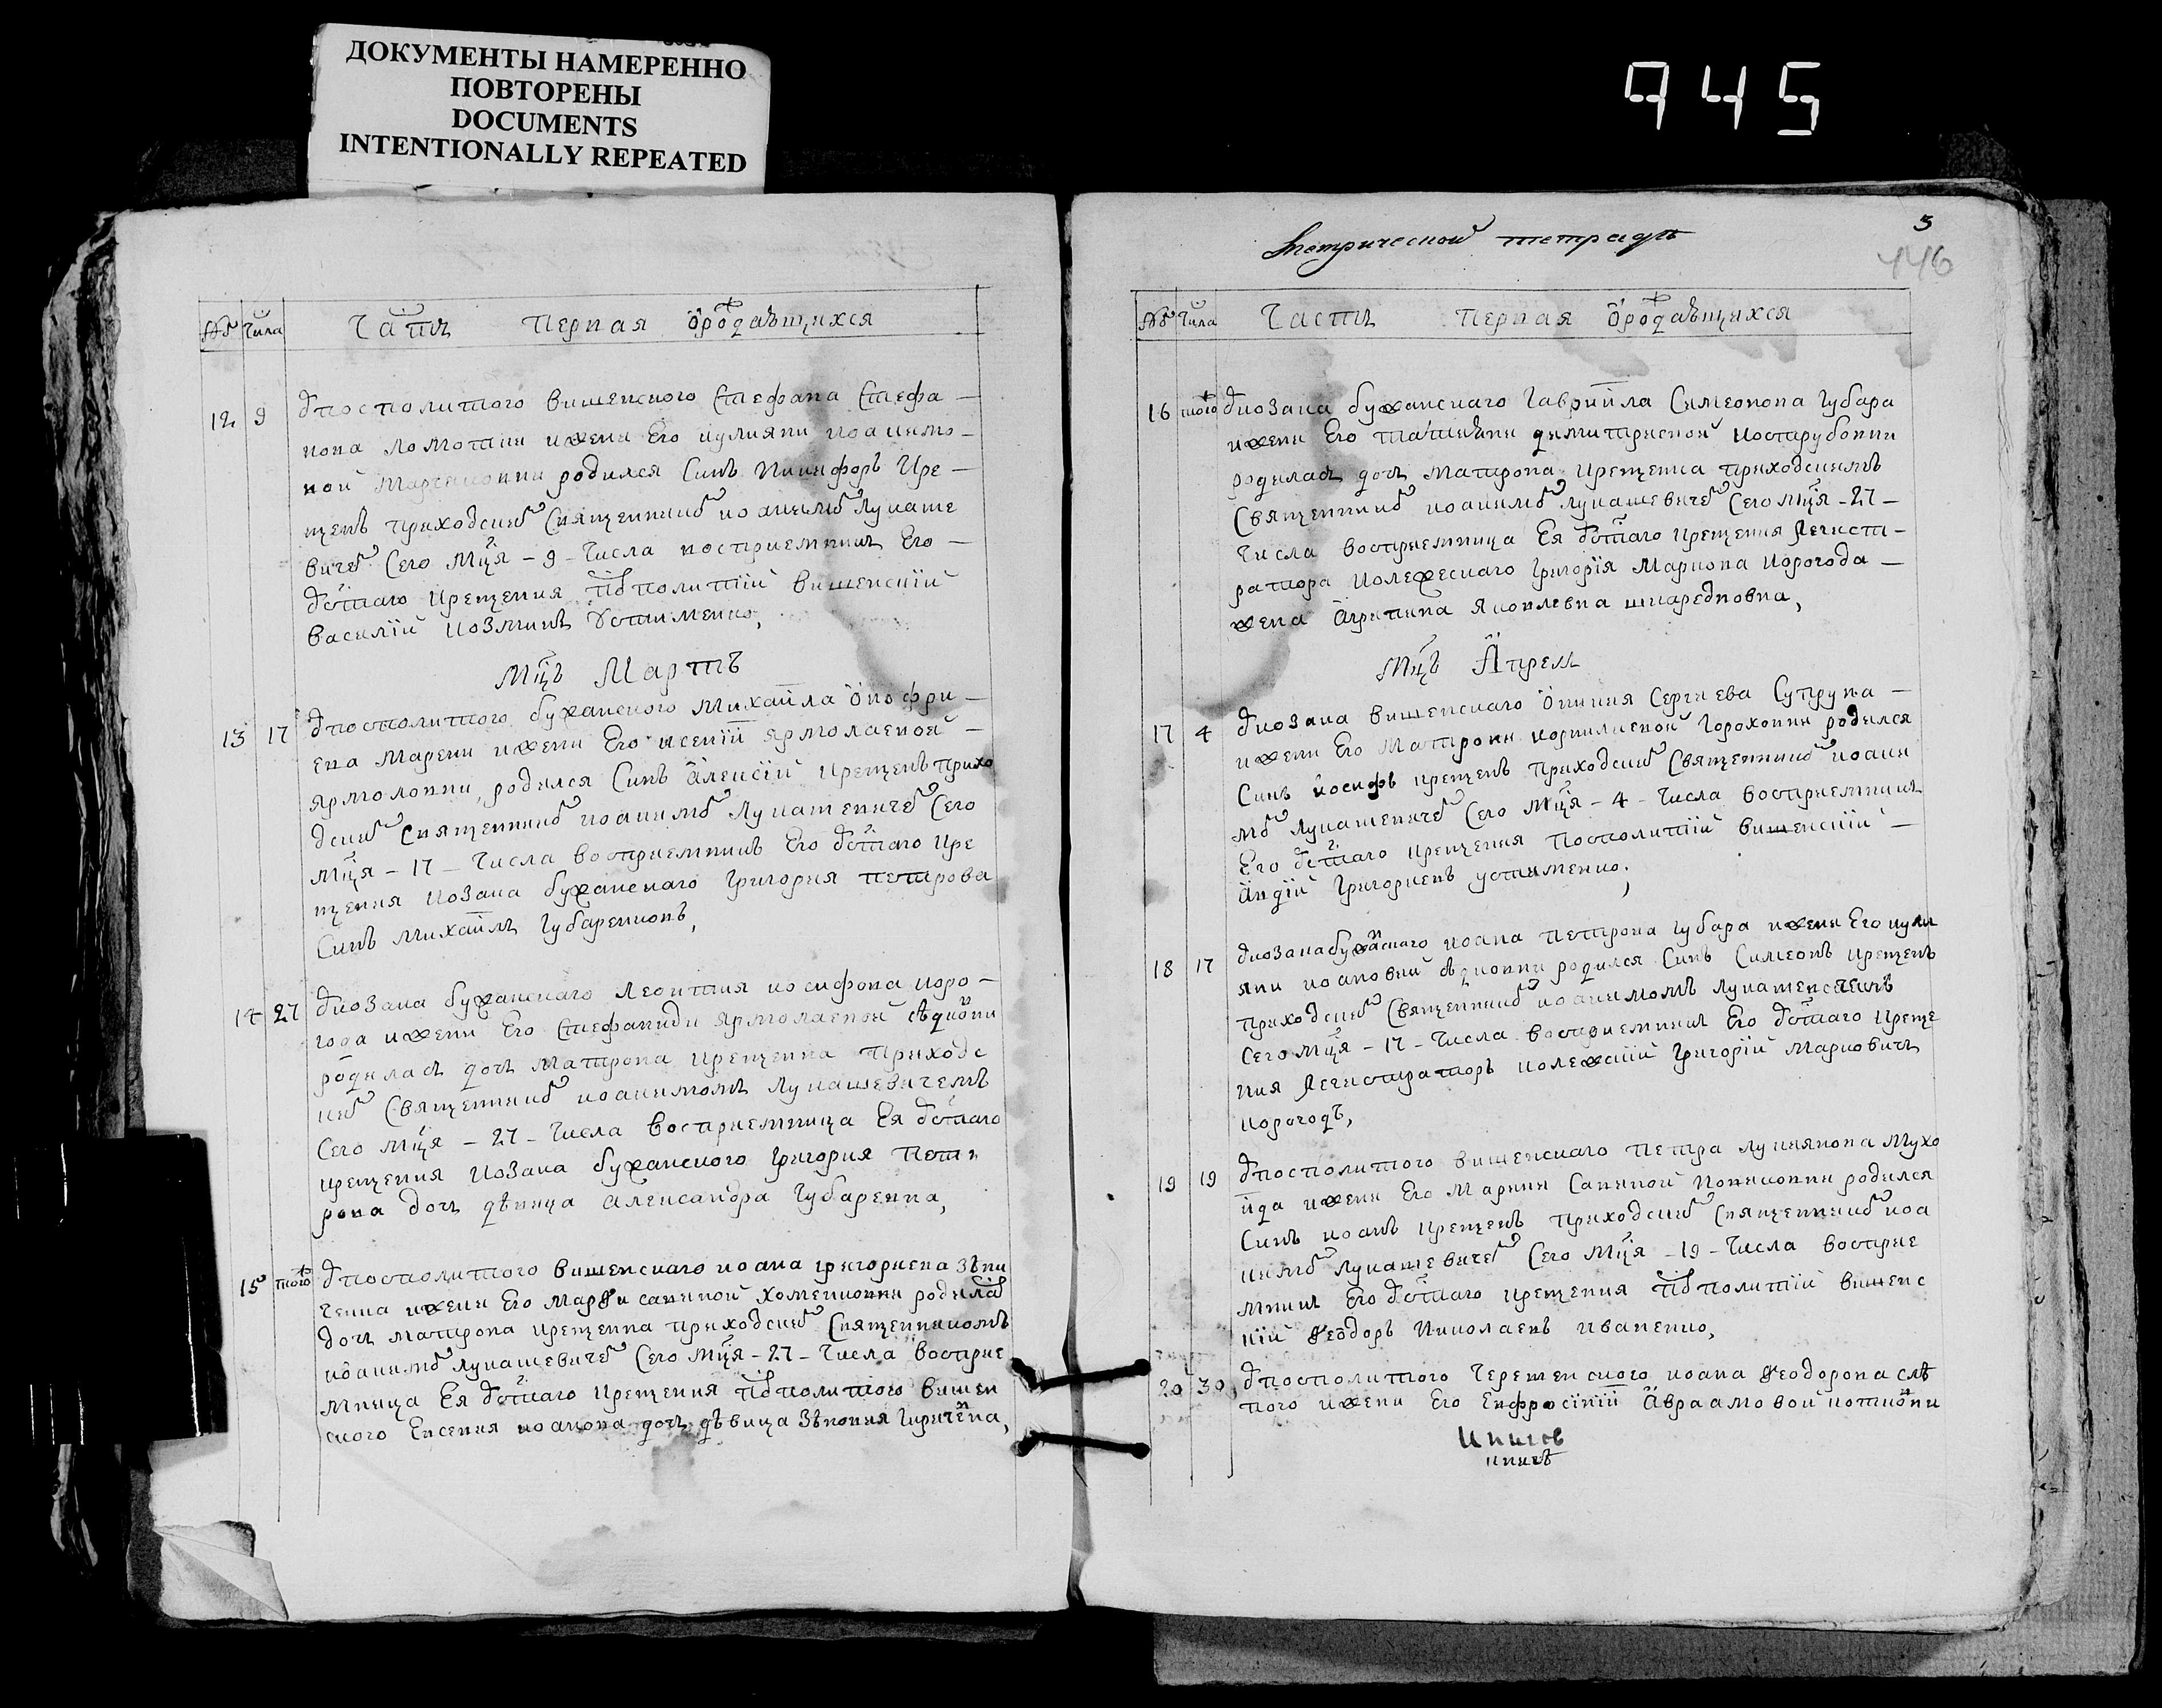 ДОКУМЕНТЫ НАМЕРЕННО
ПОВТОРЕНЫ
DOCUMENTS
INTENTIONALLY REPEATED
945
№ Числа Часть Первая ѡ рождающихся
12 9 У посполитого вишенского Стефана Стефа-
нова и жени Его иулияни иоакимо-
вой родился Синъ Никифоръ Кре-
щенъ приходским Священником иоакимом Лукаше
вичем Сего Мця - 9 - Числа восприемникъ Его -
бил святаго крещения посполитій вишенскій
Василій Козминъ Устименко,
Мцъ Мартъ
13 17 У посполитого бужанского Михаила Онофри-
ева Марени и жени Его ксеніи Ярмолаевой -
Ярмоловни, родился Синъ Алексій крещенъ прихо
дским Священником иоакимом Лукашевичем Сего
Мця - 17 - Числа восприемникъ Его бил святаго кре
щения козака бужанскаго Григория петрова
Синъ михаилъ Губаренковъ,
14 27 У козака бужанскаго Леонтия иосифова коро-
года и жени Его Стефаниди Ярмолаевой
родиласъ дочъ матрона крещенна Приходс
ким Священником иоакимомъ Лукашевичемъ
Сего мця - 27 - Числа восприемница Ея била святаго
крещения козака бужанского Григория Пет
рова дочъ дѣвица Александра Губаревна,
15 того У посполитого вишенскаго иоана григориева Зѣни
ченка и жени Его Марѳи савиной хоменковни родиласъ
дочъ матрона крещенна приходским Священникомъ
иоакимом Лукашевичем Сего мця - 27 - Числа восприе
мница Ея била святаго крещения посполитого вишен
ского Евсения иоанова дочъ дѣвица Зѣновия
Метрической тетради
3
446
№ Числа Часть Первая ѡ рождающихся
16 того У козака бужанскаго Гавриила Симеонова Губара
и жени Его татияни димитриевой костирубовни
родиласъ дочъ Матрона крещенна приходскимъ
Священником иоакимом Лукашевичем Сего Мця - 27 -
Числа восприемница Ея била святаго крещения Регист-
ратора колежескаго Григорія Маркова Корогода -
жена Агрипина Яковлевна шкаредновна,
Мцъ Апрель
17 4 У козака вишенскаго Сергиева Супруна -
и жени Его Матрони корнилиевой Гороховни родился
Синъ иосифъ крещенъ приходским Священником иоаки
мом Лукашевичем Сего мця - 4 - Числа восприемникъ
Его бил святаго крещения Посполитій вишенскій -
Андрій Григориевъ устименко;
18 17 У козака бужанскаго иоана петрова Губара и жени Его иули
яни иоановни родился Синъ Симеонъ крещенъ
приходским Священником иоакимомъ Лукашевичемъ
Сего мця - 17 - Числа восприемникъ Его бил святаго креще
ния Регистраторъ колежскій Григорій Марковичъ
корогодъ,
19 19 У посполитого вишенскаго петра лукиянова Мухо
ида и жени Его Марини Савиной родился
Синъ иоанъ крещенъ приходским Священником иоа
кимом Лукашевичем Сего Мця - 19 - Числа восприе
мникъ Его бил святаго крещения посполитій вишенс
кій Ѳеодоръ Николаевъ иваненко,
20 30 У посполитого иоана Ѳеодорова
и жени Его Евфросініи Авраамовой